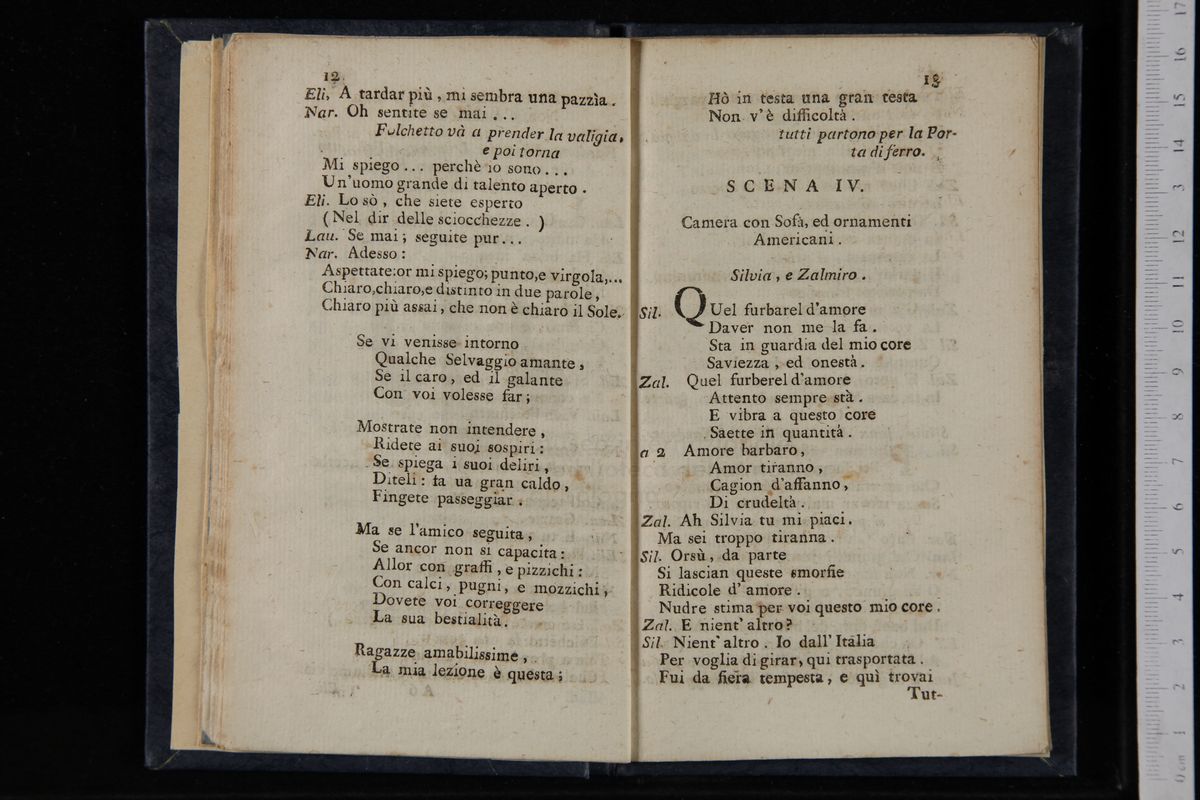 12.
Eli, A tardar più, mi sembra una pazzìa.
Nar. Oh sentite se mai...
Fulchetto và a prender la valigia,
e poi torna
Mi spiego... perchè io sono...
Un'uomo grande di talento aperto.
Eli. Lo sò, che siete esperto
(Nel dir delle sciocchezze.)
Lau. Se mai; seguite pur...
Nar. Adesso:
Aspettate:or mi spiego; punto,e virgola,...
Chiaro,chiaro,e distinto in due parole,
Chiaro più assai, che non è chiaro il Sole.
Se vi venisse intorno
Qualche Selvaggio amante,
Se il caro, ed il galante
Con voi volesse far;
Mostrate non intendere,
Ridete ai suoi sospiri:
Se spiega i suoi deliri,
Diteli: fa ua gran caldo,
Fingete passeggiar.
Ma se l'amico seguita,
Se ancor non si capacita:
Allor con graffi, e pizzichi:
Con calci, pugni, e mozzichi,
Dovete voi correggere
La sua bestialità.
Ragazze amabilissime,
La mia lezione è questa;
13
Hò in testa una gran testa
Non v'è difficoltà.
tutti partono per la Por-
ta di ferro.
SCENA IV.
Camera con Sofà, ed ornamenti
Americani.
Silvia, e Zalmiro.
Sil. QUel furbarel d'amore
Daver non me la fa.
Sta in guardia del mio core
Saviezza, ed onestà.
Zal. Quel furberel d'amore
Attento sempre stà.
E vibra a questo core
Saette in quantità.
a 2 Amore barbaro,
Amor tiranno,
Cagion d'affanno,
Di crudeltà.
Zal. Ah Silvia tu mi piaci.
Ma sei troppo tiranna.
Sil. Orsù, da parte
Si lascian queste smorfie
Ridicole d' amore.
Nudre stima per voi questo mio core.
Zal. E nient' altro?
Sil. Nient' altro. Io dall' Italia
Per voglia di girar, qui trasportata.
Fui da fiera tempesta, e quì trovai
Tut-
0 cm 1 2 3 4 5 6 7 8 9 10 11 12 13 14 15 16 17